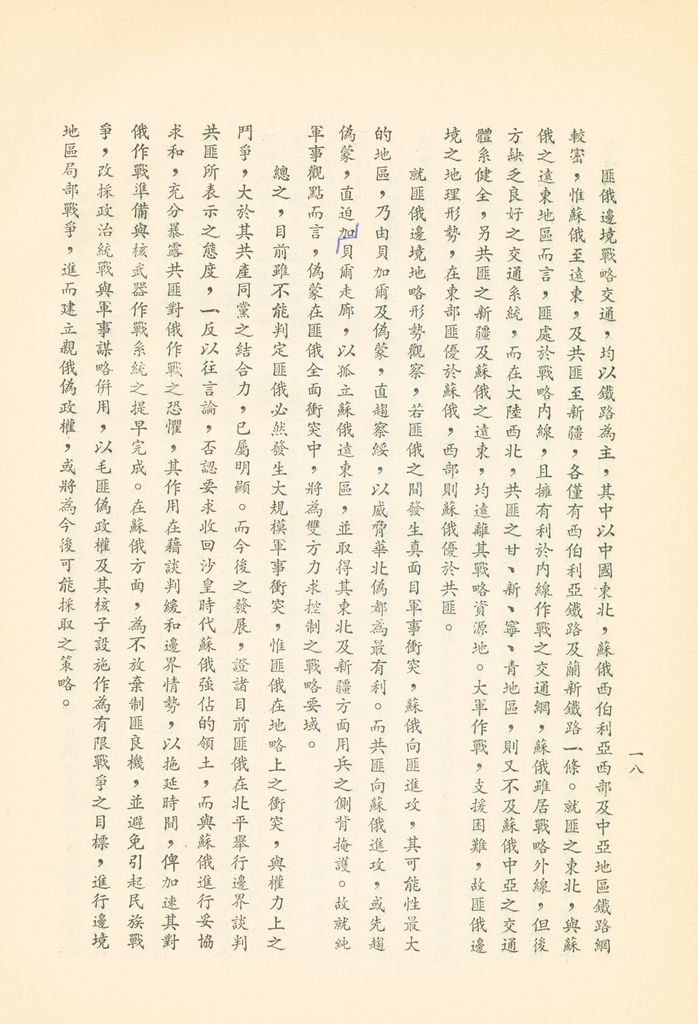 一八
匪俄邊境戰略交通，均以鐵路為主，其中以中國東北，蘇俄西伯利亞西部及中亞地區鐵路網
較密，惟蘇俄至遠東，及共匪至新疆，各僅有西伯利亞鐵路及蘭新鐵路一條。就匪之東北，與蘇
俄之遠東地區而言，匪處於戰略內線，且擁有利於內線作戰之交通網，蘇俄雖居戰略外線，但後
方缺乏良好之交通系統，而在大陸西北，共匪之甘、新、寧、青地區，則又不及蘇俄中亞之交通
體系健全，另共匪之新疆及蘇俄之遠東，均遠離其戰略資源地。大軍作戰，支援困難，故匪俄邊
境之地理形勢，在東部匪優於蘇俄，西部則蘇俄優於共匪。
就匪俄邊境地略形勢觀察，若匪俄之間發生真面目軍事衝突，蘇俄向匪進攻，其可能性最大
的地區，乃由貝加爾及偽蒙，直趨察綏，以威脅華北偽都為最有利。而共匪向蘇俄進攻，或先趨
偽蒙，直迫加貝爾走廊，以孤立蘇俄遠東區，並取得其東北及新疆方面用兵之側背掩護。故就純
軍事觀點而言，偽蒙在匪俄全面衝突中，將為雙方力求控制之戰略要域。
總之，目前雖不能判定匪俄必然發生大規模軍事衝突，惟匪俄在地略上之衝突，與權力上之
鬥爭，大於其共產同黨之結合力，已屬明顯。而今後之發展，證諸目前匪俄在北平舉行邊界談判
共匪所表示之態度，一反以往言論，否認要求收回沙皇時代蘇俄強佔的領土，而與蘇俄進行妥協
求和，充分暴露共匪對俄作戰之恐懼，其作用在藉談判緩和邊界情勢，以拖延時間，俾加速其對
俄作戰準備與核武器作戰系統之提早完成。在蘇俄方面，為不放棄制匪良機，並避免引起民族戰
爭，改採政治統戰與軍事謀略併用，以毛匪偽政權及其核子設施作為有限戰爭之目標，進行邊境
地區局部戰爭，進而建立親俄偽政權，或將為今後可能採取之策略。